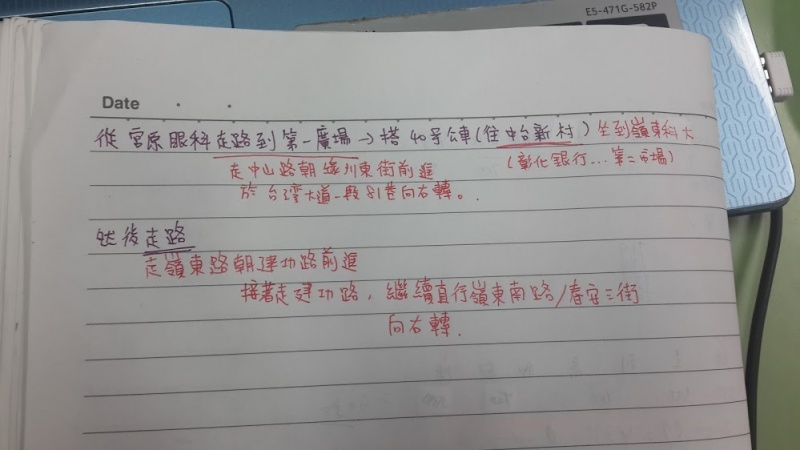 E5-471G-582P
Date
從宮原眼科走路到第一廣場→搭40号公車(往中台新村)坐到嶺東科大
走中山路朝綠川東街前進
(彰化銀行...第二市場)
於台灣大道一段81巷向右轉。
然後走路
走嶺東路朝建功路前進
接著走建功路，繼續直行嶺東南路/春安三街
向右轉.